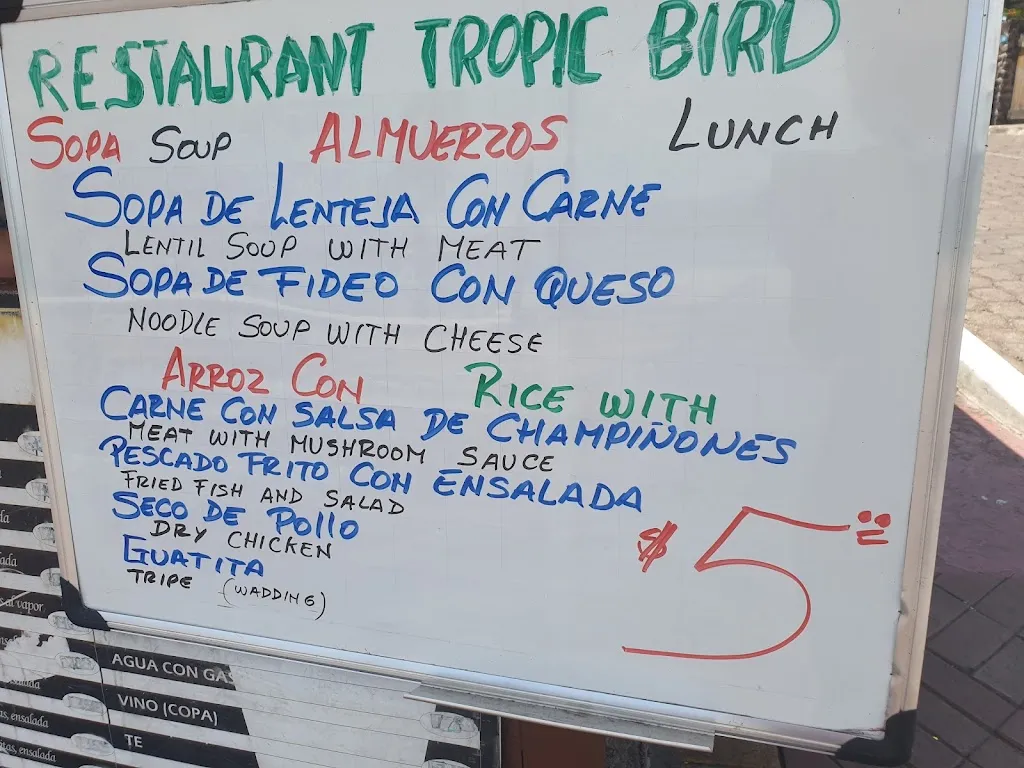 RESTAURANT TROPIC BIRD
SOPA SOUP ALMUERZOS LUNCH
SOPA DE LENTEJA CON CARNE
LENTIL SOUP WITH MEAT
SOPA DE FIDEO CON QUESO
NOODLE SOUP WITH CHEESE
ARROZ CON RICE WITH
CARNE CON SALSA DE CHAMPIÑONES
MEAT WITH MUSHROOM SAUCE
PESCADO FRITO CON ENSALADA
FRIED FISH AND SALAD
SECO DE POLLO
DRY CHICKEN
GUATITA
TRIPE (WADDING)
$5
al vapor
AGUA CON GAS
VINO (COPA)
ensalada
TE
ensalada